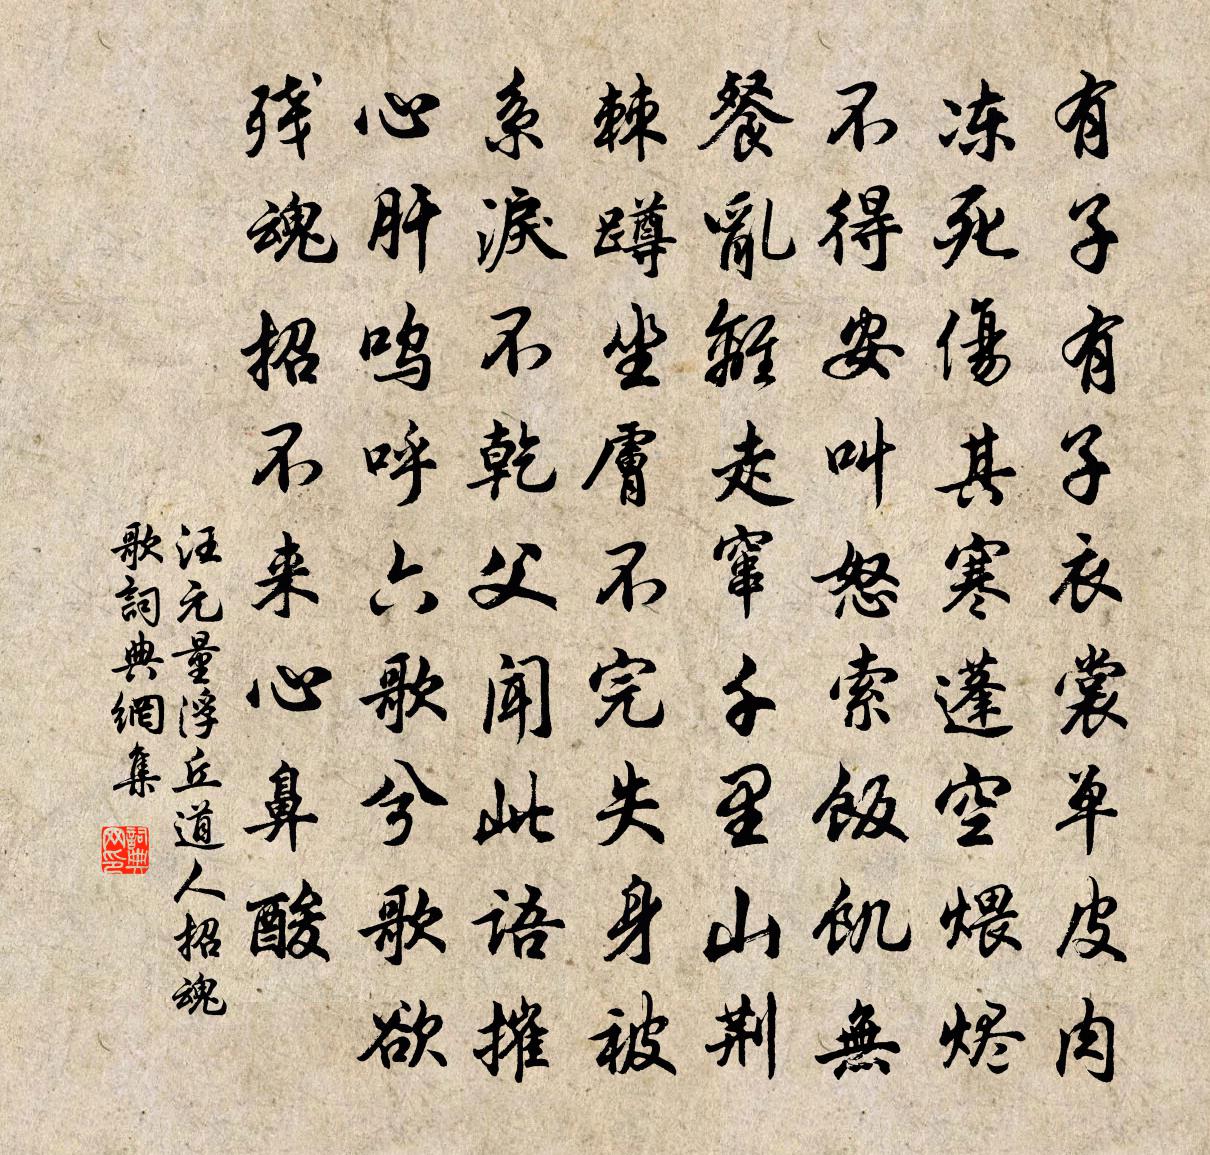 有子有子衣裳单皮肉
冻死傷其寒蓬空煨烬
不得安叫怒索饭飢無
餐亂離走窜千里山荆
棘蹲坐膚不完失身被
系淚不乾父闻此语摧
心肝呜呼六歌兮歌欲
残魂招不来心鼻酸
汪元量浮丘道人招魂
歌詞典網集
詞典
网印